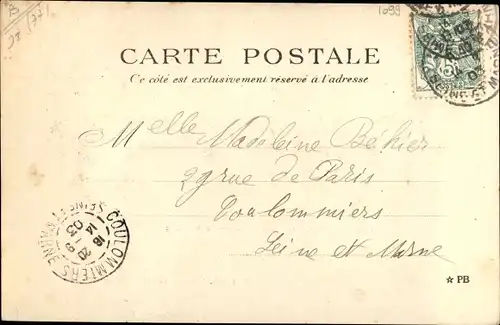 1099
CARTE POSTALE
Ce côté est exclusivement réservé à l'adresse
Melle Madeleine Béhier
29 rue de Paris
Coulommiers
Seine et Marne
COULOMMIERS
SEINE ET MARNE
18
14
03
★ PB